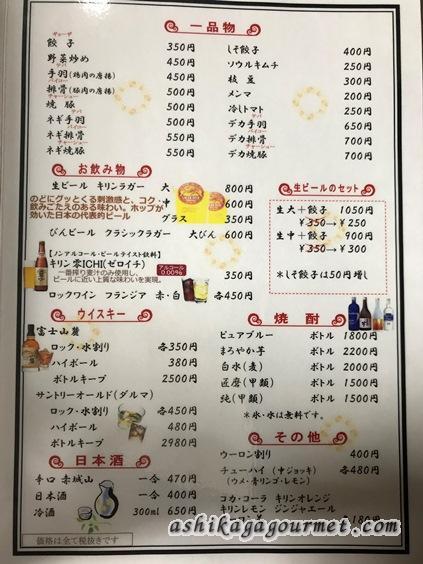 一品物
ギョーザ
餃子 350円
野菜炒め 450円
テバ
手羽(鶏肉の唐揚) 450円
パイコー
排骨(豚肉の唐揚) 500円
チャーシュー
焼豚 500円
テバ
ネギ手羽 500円
パイコー
ネギ排骨 550円
チャーシュー
ネギ焼豚 550円
しそ餃子 400円
ソウルキムチ 250円
枝豆 300円
メンマ 200円
冷しトマト 250円
テバ
デカ手羽 650円
パイコー
デカ排骨 700円
チャーシュー
デカ焼豚 700円
お飲み物
生ビール キリンラガー 大 800円
中 600円
グラス 350円
のどにグッとくる刺激感と、コク、
飲みごたえのある味わい。ホップが
効いた日本の代表的ビール
びんビール クラシックラガー 大びん 600円
【ノンアルコール・ビールテイスト飲料】
キリン 零ICHI(ゼロイチ) 350円
アルコール
0.00%
一番搾り麦汁のみ使用し、
ビールに近い上質な味わいを実現。
ロックワイン フランジア 赤・白 各450円
生ビールのセット
生大+餃子 1050円
¥350→¥250
生中+餃子 900円
¥350→¥300
*しそ餃子は50円増し
ウイスキー
富士山麓
ロック・水割り 各350円
ハイボール 380円
ボトルキープ 2500円
サントリーオールド(ダルマ)
ロック・水割り 各450円
ハイボール 480円
ボトルキープ 2980円
焼酎
ピュアブルー ボトル 1800円
まろやか芋 ボトル 2200円
白水(麦) ボトル 2000円
匠磨(甲類) ボトル 1500円
純(甲類) ボトル 1500円
*氷・水は無料です。
日本酒
辛口 赤城山 一合 470円
日本酒 一合 400円
冷酒 300ml 650円
その他
ウーロン割り 400円
チューハイ(中ジョッキ) 各480円
(ウメ・青リンゴ・レモン)
コカ・コーラ キリンオレンジ
キリンレモン ジンジャエール
各180円
価格は全て税抜きです
ashikagagourmet.com